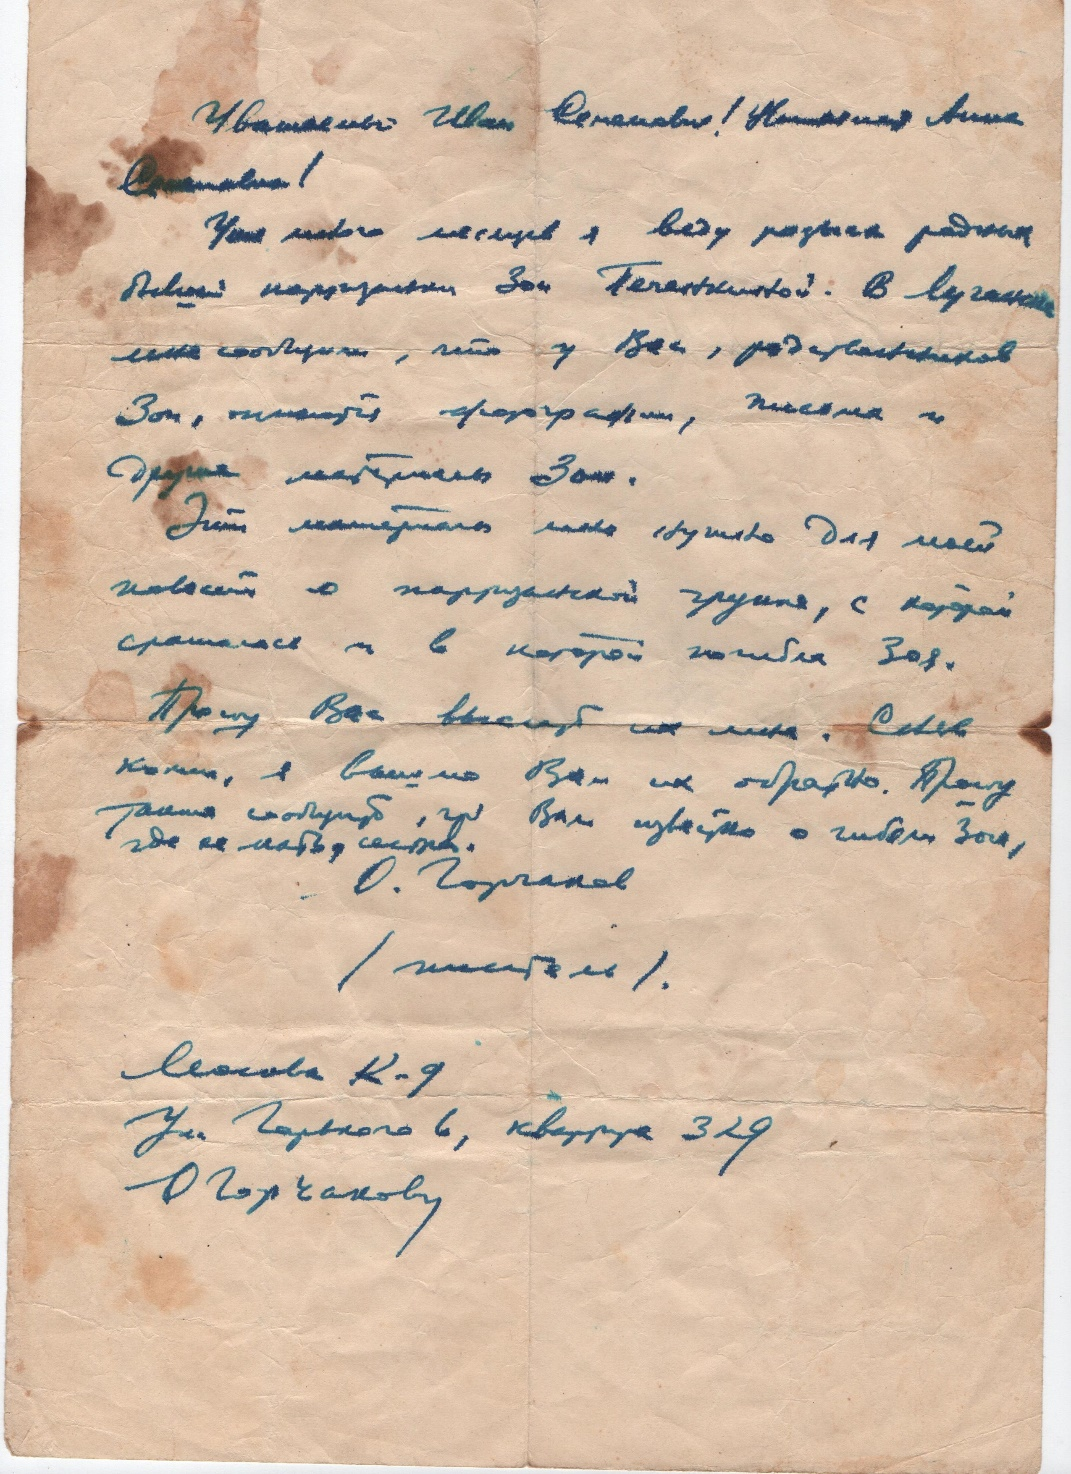 Уважаемый Иван Семенович! Уважаемая Анна
Семеновна!
Уже много месяцев я веду розыск родных
бывшей партизанки Зои Печенкиной. В Луганске
мне сообщили, что у Вас, родственников
Зои, имеются фотографии, письма и
другие материалы Зои.
Эти материалы мне нужно для моей
повести о партизанской группе, с которой
сражалась и в которой погибла Зоя.
Прошу Вас выслать их мне. Сняв
копии, я вышлю Вам их обратно. Прошу
также сообщить, что Вам известно о гибели Зои,
где ее мать, сестры.
О. Горчаков
/писатель/.
Москва К-9
Ул. Горького 6, квартира 329
О Горчакову